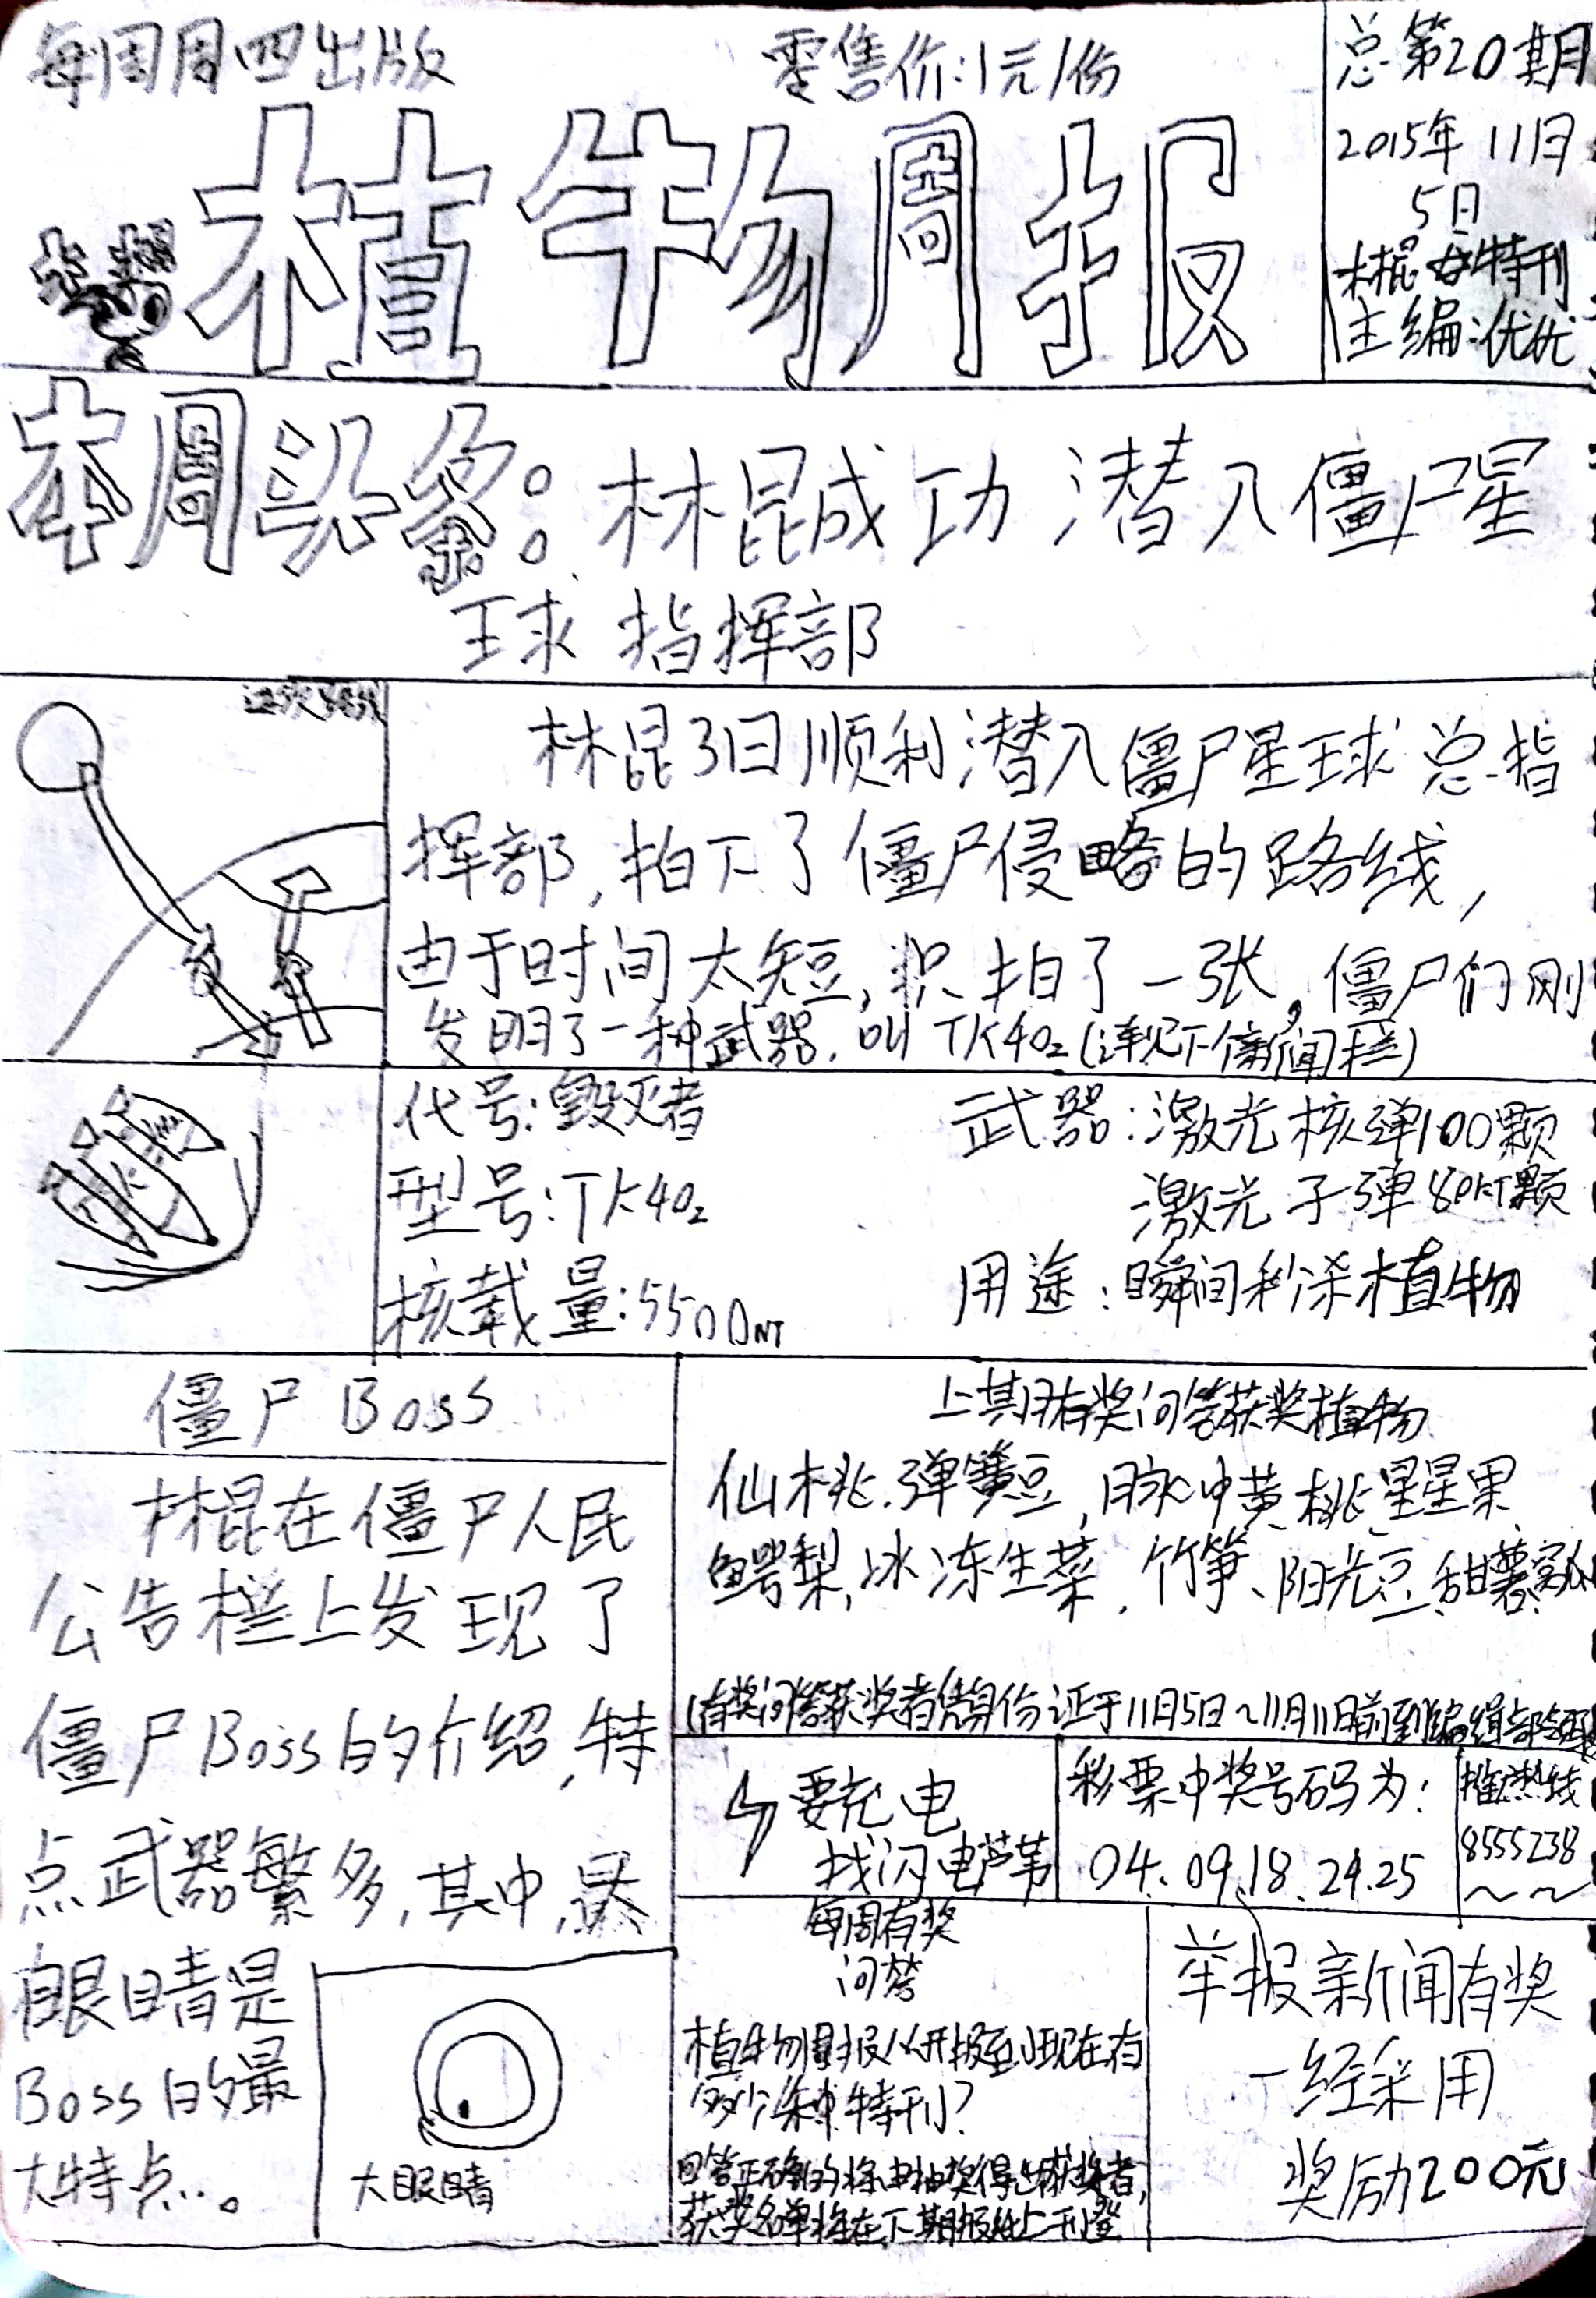 每周周四出版
零售价:1元/份
总第20期
2015年11月
5日
木棍 特刊
主编:优优
植物周报
本周头条:林昆成功潜入僵尸星
球指挥部
进攻路线
林昆3日顺利潜入僵尸星球总指
挥部,拍下了僵尸侵略的路线,
由于时间太短,只拍了一张,僵尸们刚
发明了一种武器,叫TK402(详见下新闻栏)
代号:毁灭者
型号:TK402
核载量:5500NT
武器:激光核弹100颗
激光子弹 颗
用途:瞬间秒杀植物
僵尸Boss
林棍在僵尸人民
公告栏上发现了
僵尸Boss的介绍,特
点武器繁多,其中,最
眼睛是
Boss的最
大特点…。
大眼睛
上期有奖问答获奖植物
仙桃.弹簧豆,脉冲黄桃、星星果
鳄梨,冰冻生菜,竹笋、阳光豆、甜薯
(有奖问答获奖者凭身份证于11月5日~11月11日前到编辑部领取
要充电
找闪电芦苇
彩票中奖号码为:
04.09.18.24.25
热线
8555238
~~
每周有奖
问答
植物周报从开报至现在有
多少种特刊?
回答正确的将由抽奖得出获奖者,
获奖名单将在下期报纸上刊登
举报新闻有奖
一经采用
奖励200元